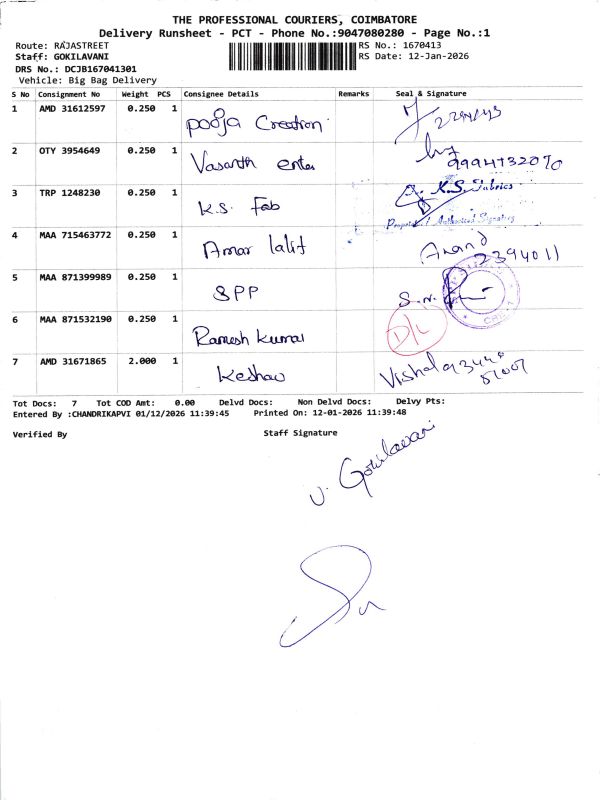 THE PROFESSIONAL COURIERS, COIMBATORE
Delivery Runsheet - PCT - Phone No.:9047080280 - Page No.:1
Route: RAJASTREET RS No.: 1670413
Staff: GOKILAVANI RS Date: 12-Jan-2026
DRS No.: DCJB167041301
Vehicle: Big Bag Delivery
S No Consignment No Weight PCS Consignee Details Remarks Seal & Signature
1 AMD 31612597 0.250 1 Pooja Creation
2 OTY 3954649 0.250 1 Vasanth enter 9994732070
3 TRP 1248230 0.250 1 K.S. Fab K.S. Fabrics
4 MAA 715463772 0.250 1 Amar lalit Anand 2394011
5 MAA 871399989 0.250 1 SPP S.N.
6 MAA 871532190 0.250 1 Ramesh Kumar D/L
7 AMD 31671865 2.000 1 Keshav Vishal 93440
51007
Tot Docs: 7 Tot COD Amt: 0.00 Delvd Docs: Non Delvd Docs: Delvy Pts:
Entered By :CHANDRIKAPVI 01/12/2026 11:39:45 Printed On: 12-01-2026 11:39:48
Verified By Staff Signature
V. Gokilavani